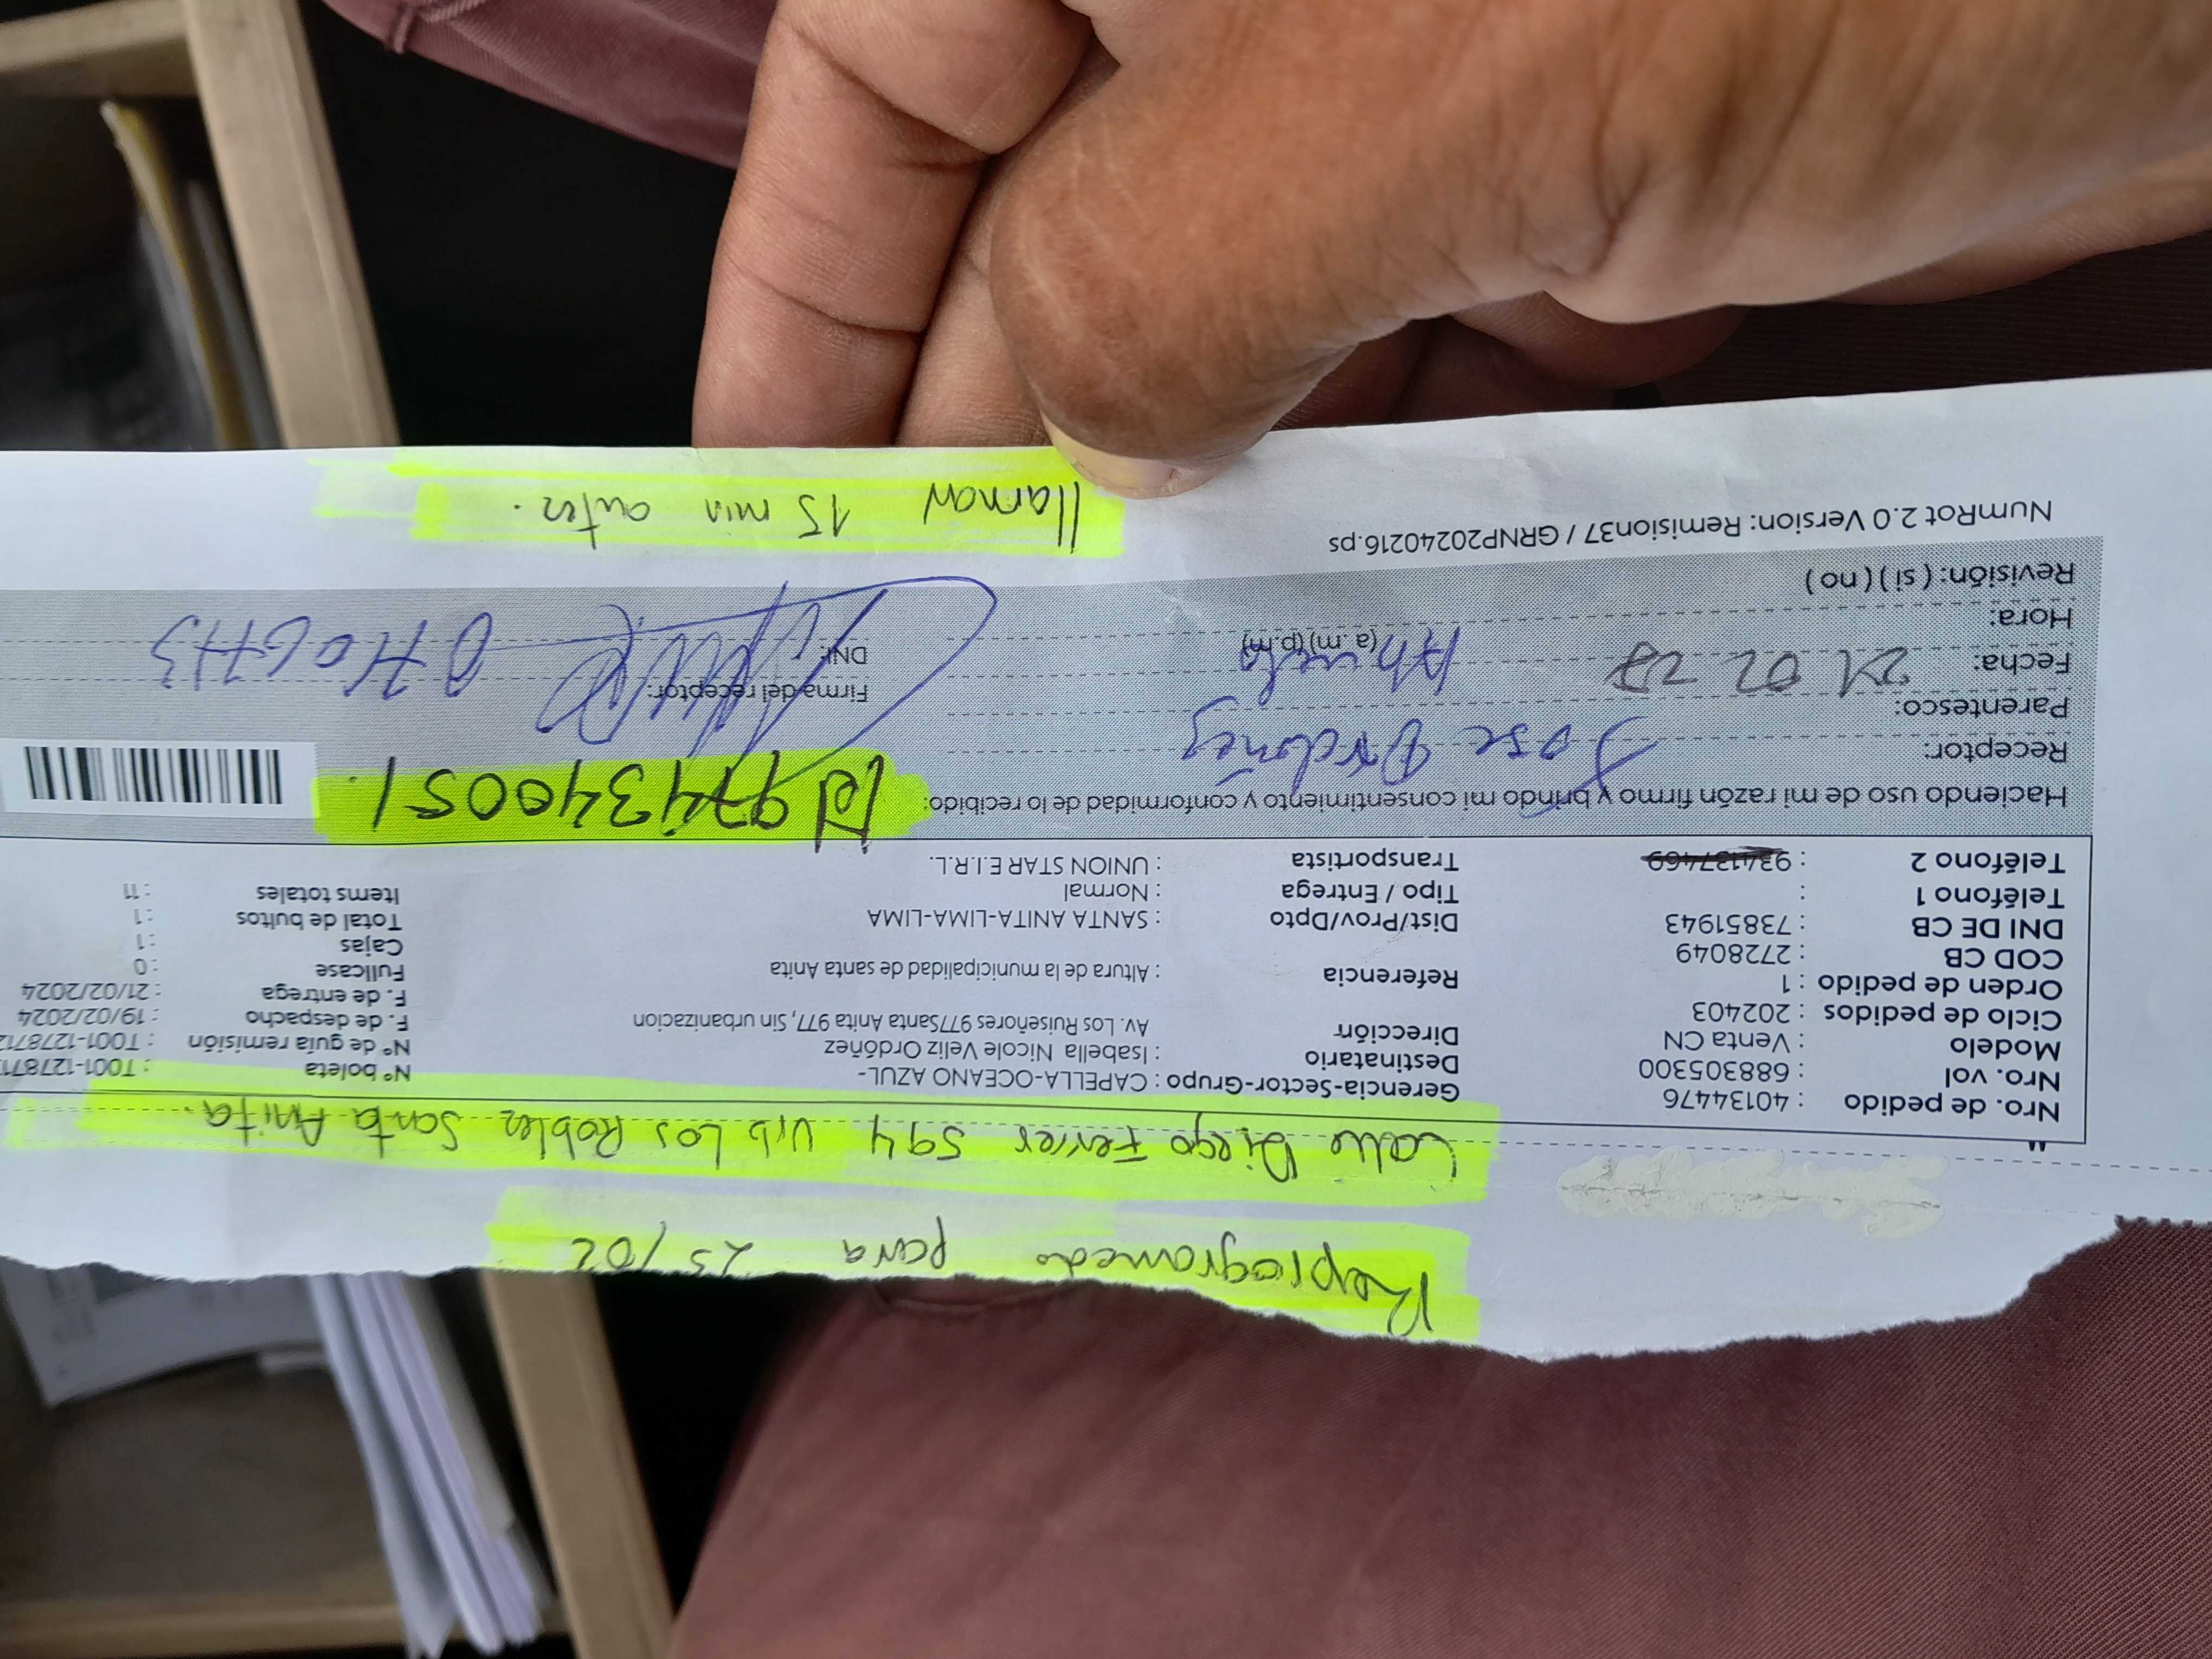 Reprogramado para 25/02
Calle Diego Ferrer 594 Urb Los Robles Santa Anita.
Nro. de pedido : 40134476
Nro. vol : 688305300
Modelo : Venta CN
Ciclo de pedidos : 202403
Orden de pedido : 1
COD CB : 2728049
DNI DE CB : 73851943
Teléfono 1 :
Teléfono 2 : 934137469
Gerencia-Sector-Grupo : CAPELLA-OCEANO AZUL-
Destinatario : Isabella Nicole Veliz Ordóñez
Dirección Av. Los Ruiseñores 977Santa Anita 977, Sin urbanizacion
Referencia : Altura de la municipalidad de santa Anita
Dist/Prov/Dpto : SANTA ANITA-LIMA-LIMA
Tipo / Entrega : Normal
Transportista : UNION STAR E.I.R.L.
N° boleta : T001-127871
N° de guía remisión : T001-127871
F. de despacho : 19/02/2024
F. de entrega : 21/02/2024
Fullcase : 0
Cajas : 1
Total de bultos : 1
Items totales : 11
Haciendo uso de mi razón firmo y brindo mi consentimiento y conformidad de lo recibido:
974340051
Receptor: Jose Ordoñez
Parentesco: Abuelo
Fecha: 21 02
Hora: (a. m) (p.m)
Revisión: ( si ) ( no )
Firma del receptor:
DNI:
NumRot 2.0 Version: Remision37 / GRNP20240216.ps
llamar 15 min antes.